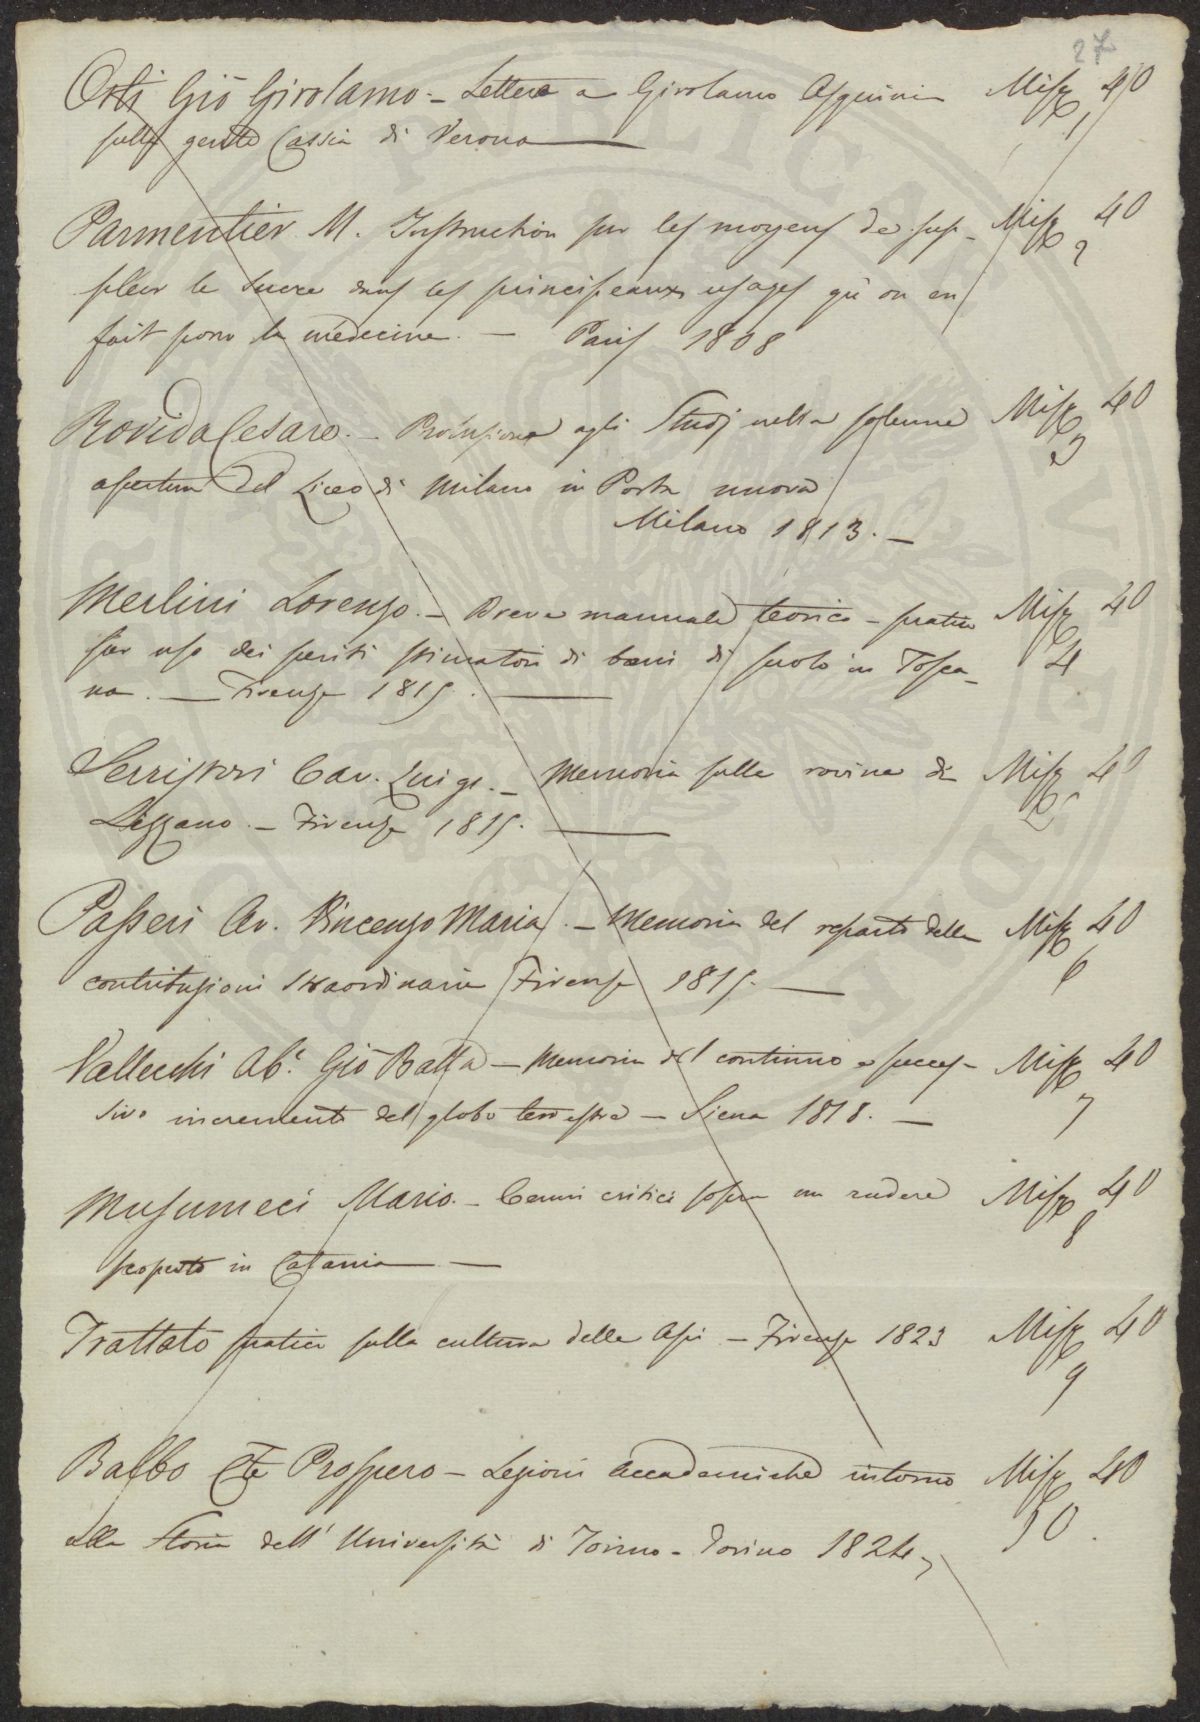 27
Orti Gio Girolamo - Lettera a Girolamo Asquini Misc 40
sulla gente Cassia di Verona 1
Parmentier M. Instruction sur les moyens de sup- Misc 40
pléer le sucre dans les principeaux usages qu'on en 2
fait pour la médecine. - Paris 1808
Rovida Cesare. - Prolusione agli Studj nella solenne Misc 40
apertura del Liceo di Milano in Porta nuova 3
Milano 1813. -
Merlini Lorenzo. - Breve manuale teorico - pratico Misc 40
per uso dei periti stimatori di beni di suolo in Tosca- 4
na. - Firenze 1815.
Serristori Cav. Luigi. - Memoria sulle rovine di Misc 40
- Firenze 1815. 5
Passeri Av. Vincenzo Maria. - Memoria del reparto delle Misc 40
contribuzioni straordinarie Firenze 1815. - 6
Vallecchi Ab.e Gio Batta - Memoria del continuo e succes- Misc 40
sivo incremento del globo terrestre - Siena 1818. - 7
Musumeci Mario. - Cenni critici sopra un rudere Misc 40
scoperto in Catania - 8
Trattato pratico sulla cultura delle Api - Firenze 1823 Misc 40
9
Balbo Cte Prospero - Lezioni Accademiche intorno Misc 40
alla Storia dell' Università di Torino - Torino 1824 10.